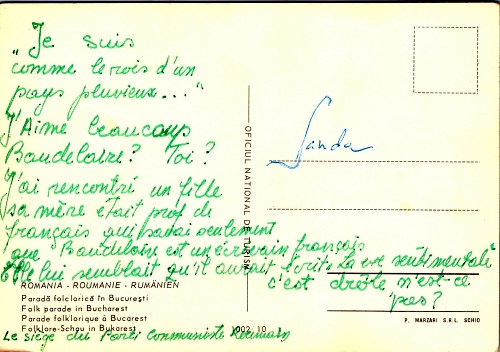 „Je suis
comme le rois d'un
pays pluvieux..."
J'Aime beaucoup
Baudelaire? Toi?
J'ai rencontré un fille
sa mère était prof de
français qui savai seulement
que Baudelaire est un écrivain français
Elle lui semblait qu'il aurait écrit „La
c'est drôle n'est-ce
pas?
Sanda
OFICIUL NATIONAL DE TURISM
ROMANIA - ROUMANIE - RUMÄNIEN
Paradă folclorică în București
Folk parade in Bucharest
Parade folklorique à Bucarest
Folklore-Schau in Bukarest
1002-10
P. MARZARI S.R.L. SCHIO
Le siège du Parti Communiste Roumain